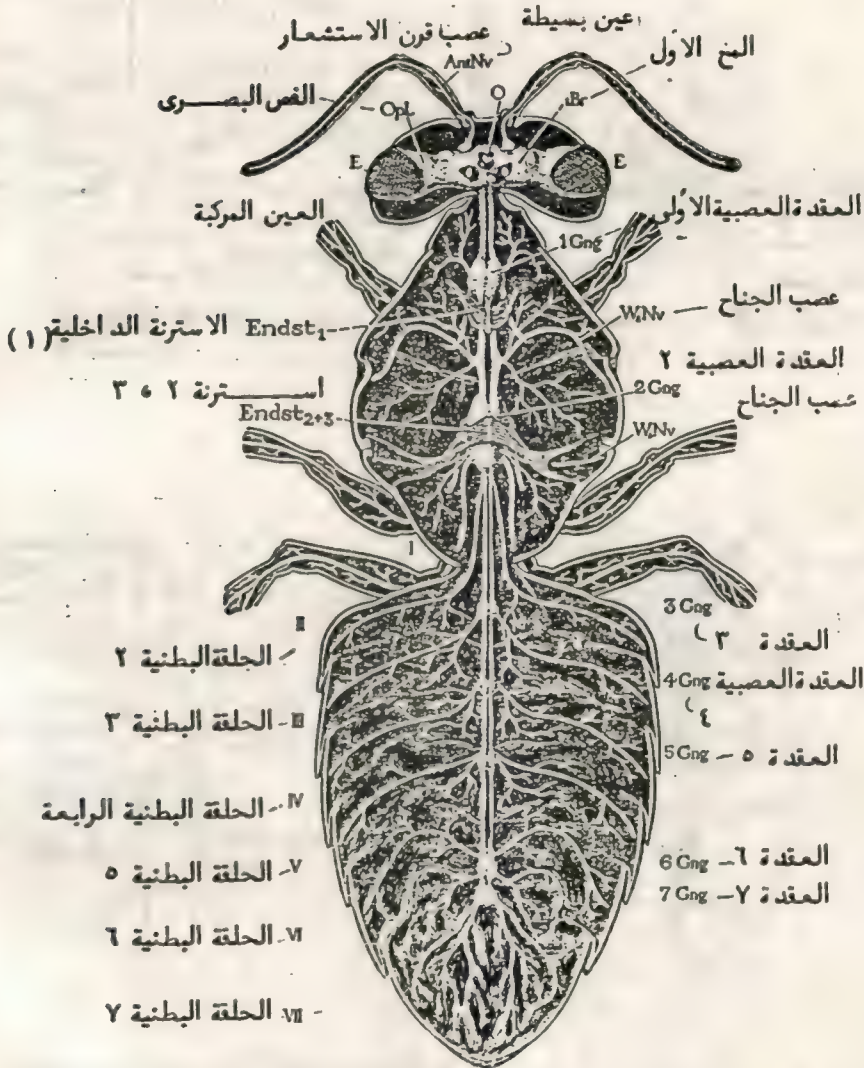 عين بسيطة
عصب قرن الاستشعار
المخ الأول
AntNv
O
1Br
الفص البصرى
OpL
E
E
العين المركبة
العقدة العصبية الأولى
1Gng
عصب الجناح
W₂Nv
الاسترنة الداخلية (١)
Endst₁
العقدة العصبية ٢
2Gng
استرنة ٢ ، ٣
Endst₂₊₃
عصب الجناح
W₃Nv
I
3 Gng
العقدة ٣
II
الحلقة البطنية ٢
4Gng العقدة العصبية
٤
III الحلقة البطنية ٣
5Gng – العقدة ٥
IV الحلقة البطنية الرابعة
V الحلقة البطنية ٥
6 Gng – العقدة ٦
7 Gng – العقدة ٧
VI الحلقة البطنية ٦
VII الحلقة البطنية ٧